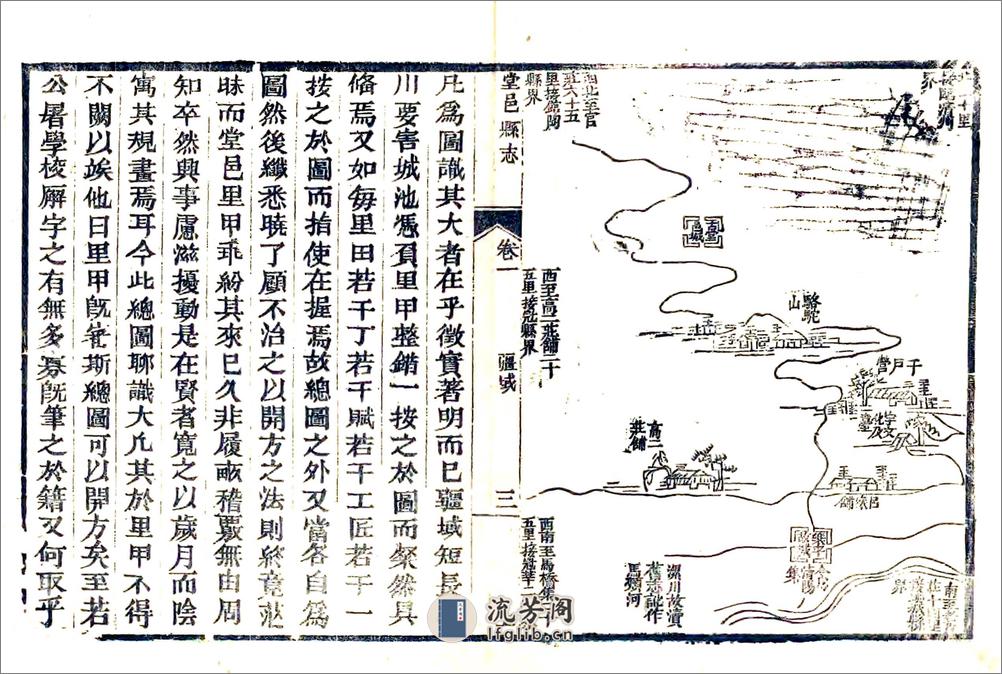 界
西北至官
莊六十五
里接館陶
縣界
駱駝
山
千戶營
高二
莊鋪
呂家
鋪
西至高二莊鋪二十
五里接冠縣界
西南至馬橋集
漯川故瀆
舊志訛作
馬頰河
堂邑縣志
卷一
疆域
三
凡爲圖識其大者在乎徵實著明而已疆域短長山
川要害城池憑負里甲整錯一按之於圖而粲然具
備焉又如每里田若干丁若干賦若干工匠若干一
按之於圖而指使在握焉故總圖之外又當各自爲
圖然後纖悉曉了顧不治之以開方之法則終竟茫
昧而堂邑里甲乖紛其來已久非履畝稽覈無由周
知卒然興事慮滋擾動是在賢者寬之以歲月而陰
寓其規畫焉耳今此總圖聊識大凡其於里甲不得
不闕以俟他日里甲旣定斯總圖可以開方矣至若
公署學校廨宇之有無多寡旣筆之於籍又何取乎
流芳阁
lfglib.cn